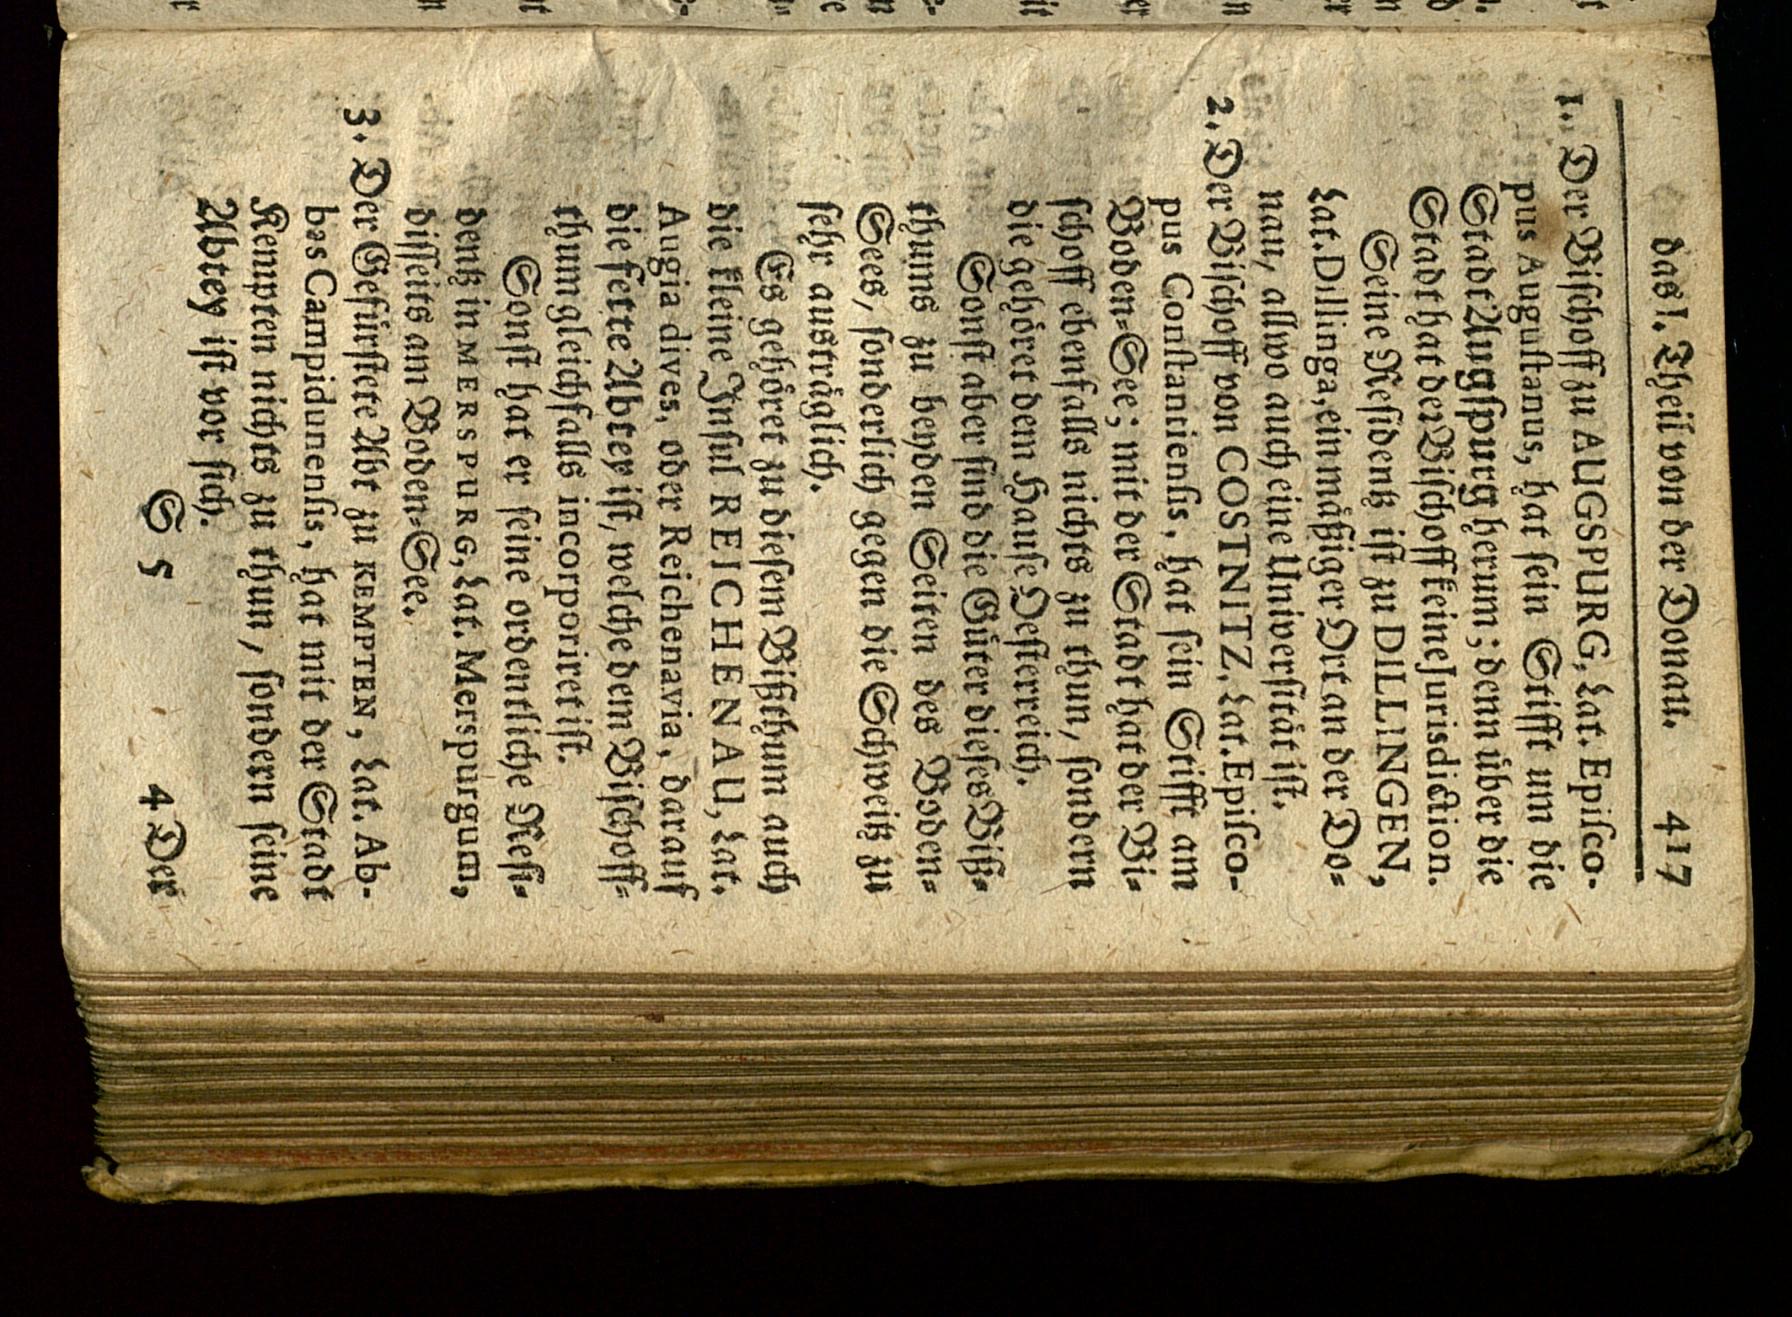 das I. Theil von der Donau. 417
1. Der Bischoff zu AUGSPURG, Lat. Episco-
pus Augustanus, hat sein Stifft um die
Stadt Augspurg herum; denn über die
Stadt hat der Bischoff keine Jurisdiction.
Seine Residentz ist zu DILLINGEN,
Lat. Dillinga, ein mäßiger Ort an der Do-
nau, allwo auch eine Universität ist.
2. Der Bischoff von COSTNITZ, Lat. Episco-
pus Constantiensis, hat sein Stifft am
Boden-See; mit der Stadt hat der Bi-
schoff ebenfalls nichts zu thun, sondern
die gehöret dem Hause Oesterreich.
Sonst aber sind die Güter dieses Biß-
thums zu beyden Seiten des Boden-
Sees, sonderlich gegen die Schweitz zu
sehr austräglich.
Es gehöret zu diesem Bißthum auch
die kleine Insul REICHENAU, Lat.
Augia dives, oder Reichenavia, darauf
die fette Abtey ist, welche dem Bischoff-
thum gleichfalls incorporiret ist.
Sonst hat er seine ordentliche Resi-
dentz in MERSPURG, Lat. Merspurgum,
disseits am Boden-See.
3. Der Gefürstete Abt zu KEMPTEN, Lat. Ab-
bas Campidunensis, hat mit der Stadt
Kempten nichts zu thun, sondern seine
Abtey ist vor sich.
S 5 4 Der